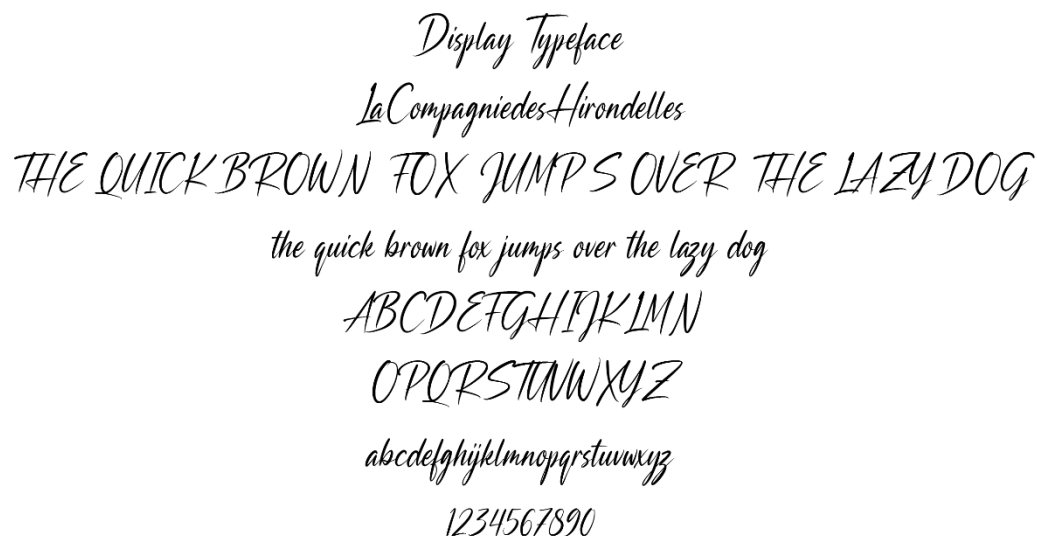 Display Typeface
LaCompagniedesHirondelles
THE QUICK BROWN FOX JUMPS OVER THE LAZY DOG
the quick brown fox jumps over the lazy dog
ABCDEFGHIJKLMN
OPQRSTUVWXYZ
abcdefghijklmnopqrstuvwxyz
1234567890